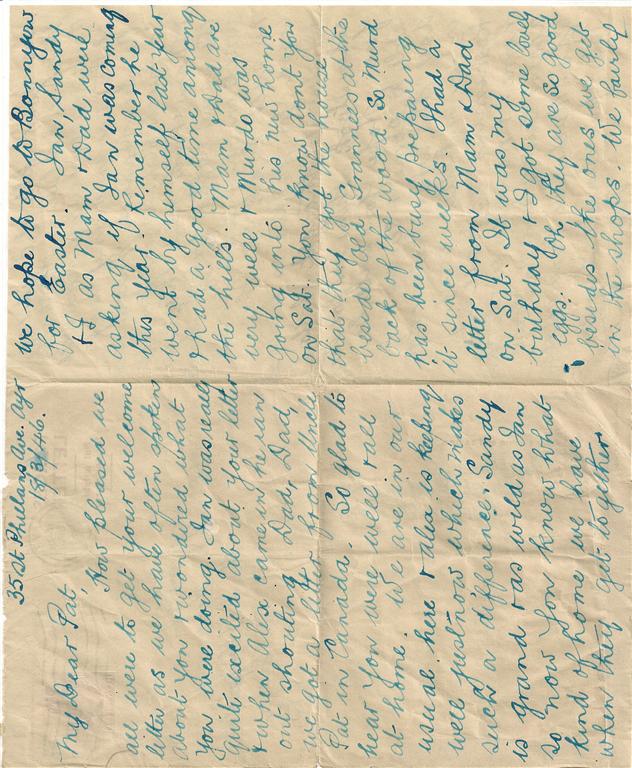 35 St Phillans Ave. Ayr
13/3/46.
My Dear Pat
How pleased we
all were to get your welcome
letter as we have often spoken
about you & wondered what
you were doing. Ian was really
quite excited about your letter
& when Alex came in he ran
out shouting Dad, Dad,
we got a letter from Uncle
Pat in Canada. So glad to
hear you were well & all
at home. We are in our
usual here & Alex is keeping
well just now which makes
such a difference. Sandy
is grand & as wild as Ian
so now you know what
kind of home we have
when they get together
we hope to go to Bonnyow
for Easter. Ian, Sandy
& I as Mam & Dad were
asking if Ian was coming
this year. Remember he
went by himself last year
& had a good time among
the hills. Mam & Dad are
very well & Murdo was
going into his new home
on Sat. You know dont you
that they got the house
beside old Grannies at the
back of the wood. So Murd
has been busy preparing
it since weeks. I had a
letter from Mam & Dad
on Sat. It was my
birthday & I got some lovely
eggs. Oh they are so good
besides the ones we get
in the shops. We fairly